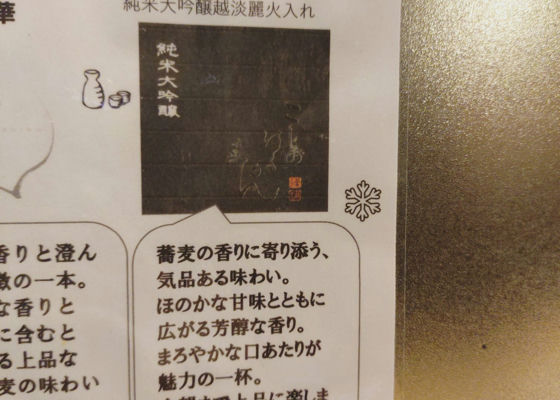 華
純米大吟醸越淡麗火入れ
純米大吟醸
香りと澄ん
の一本。
な香りと
に含むと
る上品な
麦の味わい
蕎麦の香りに寄り添う、
気品ある味わい。
ほのかな甘味とともに
広がる芳醇な香り。
まろやかな口あたりが
魅力の一杯。